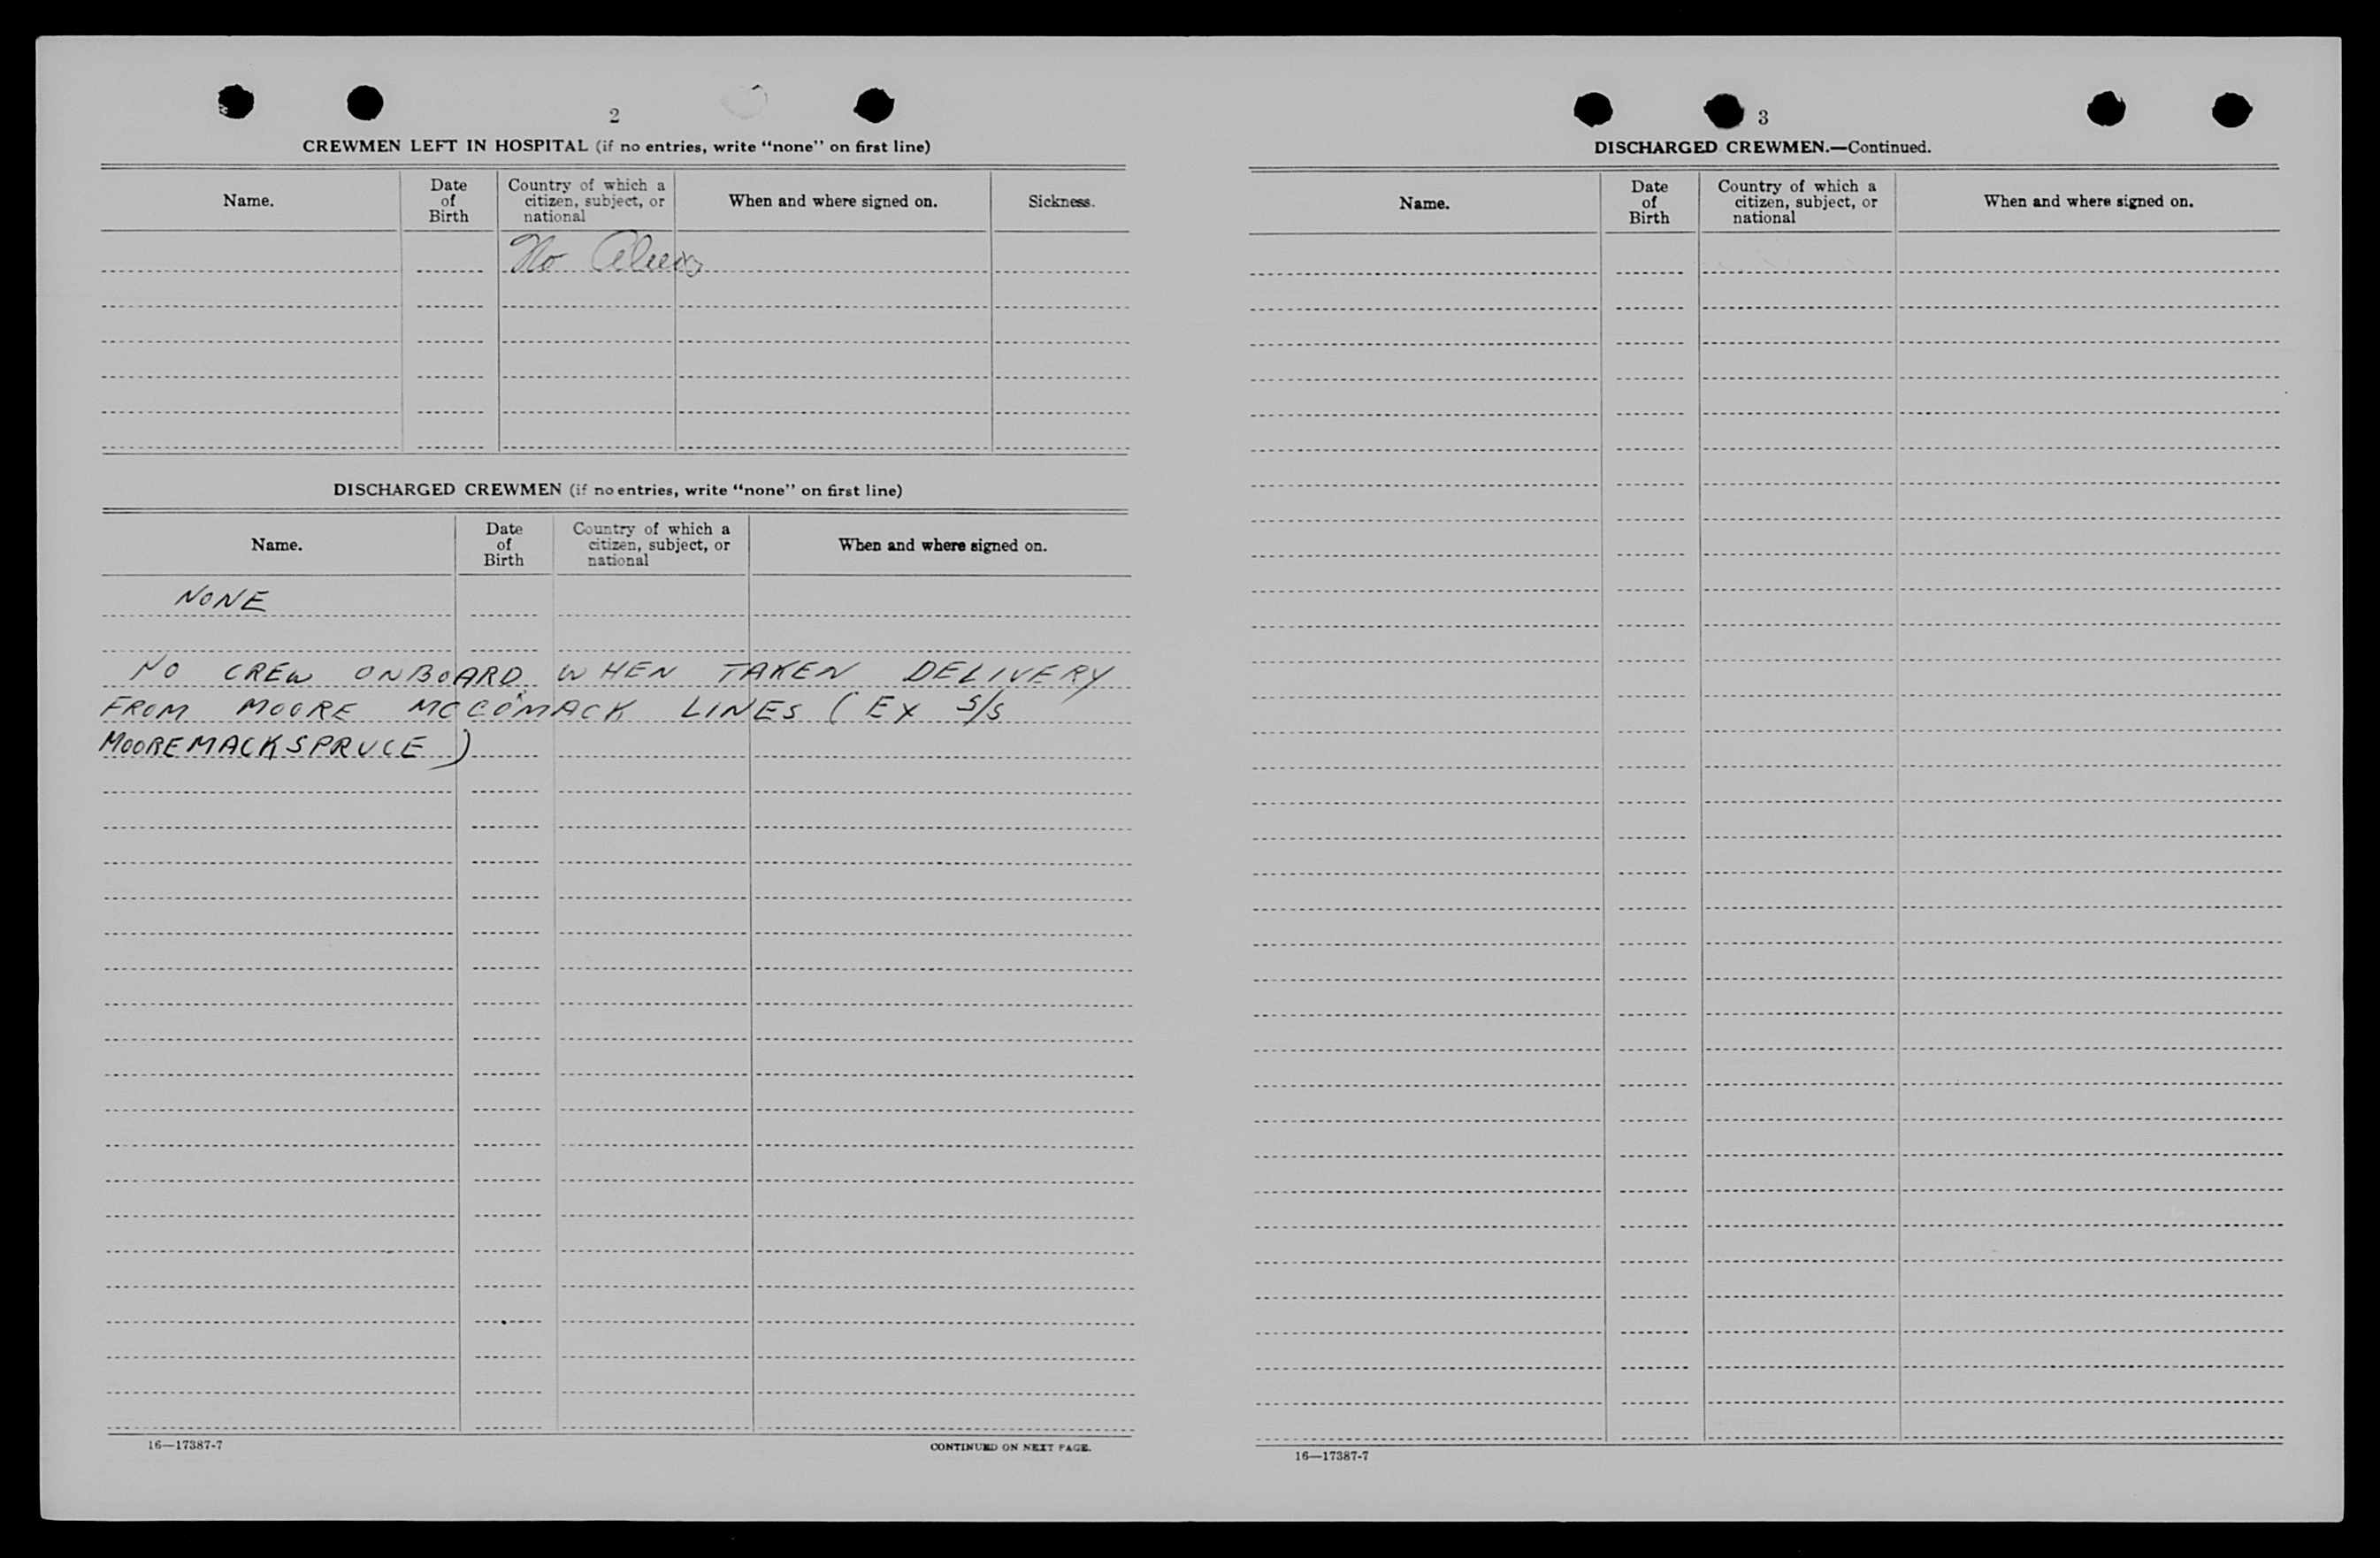 2
CREWMEN LEFT IN HOSPITAL (if no entries, write "none" on first line)
Name.
Date of Birth
Country of which a citizen, subject, or national
When and where signed on.
Sickness.
No Aliens
DISCHARGED CREWMEN (if no entries, write "none" on first line)
Name.
Date of Birth
Country of which a citizen, subject, or national
When and where signed on.
NONE
NO CREW ONBOARD WHEN TAKEN DELIVERY
FROM MOORE MCCOMACK LINES (EX S/S
MOOREMACKSPRUCE)
16—17387-7
CONTINUED ON NEXT PAGE.
3
DISCHARGED CREWMEN.—Continued.
Name.
Date of Birth
Country of which a citizen, subject, or national
When and where signed on.
16—17387-7